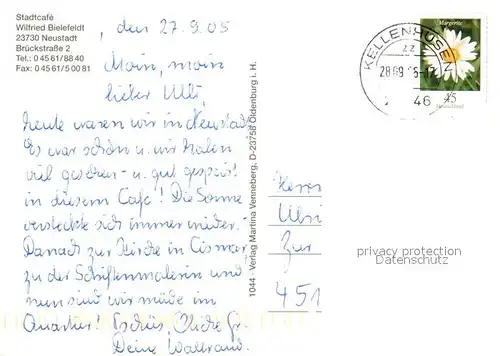 Stadtcafè
Wilfried Bielefeldt
23730 Neustadt
Brückstraße 2
Tel.: 0 45 61/88 40
Fax: 0 45 61/5 00 81
, den 27.9.05
Moin, moin
lieber Ulli,
heute waren wir in Neustadt.
Es war schön u. wir haben
viel gesehen - u. gut gespeist
in diesem Cafe! Die Sonne
versteckte sich immer wieder.
Danach zur Kirche in Cismar,
zu der Schriftenmalerin und
nun sind wir müde im
Quartier! Tschüs,
Deine Waltraud.
1044 - Verlag Martina Venneberg, D-23758 Oldenburg i. H.
Margerite
45
Deutschland
KELLENHUSEN
22
28.09
46
Herrn
Ulri
Zur
451
privacy protection
Datenschutz